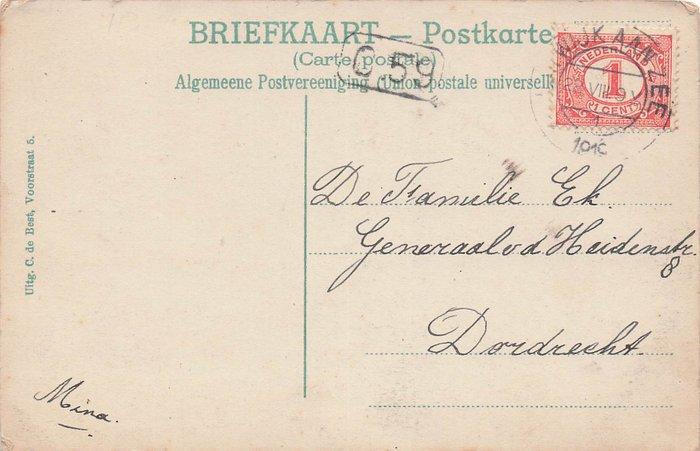 BRIEFKAART — Postkarte
(Carte postale)
Algemeene Postvereeniging (Union postale universelle
G.59
WIJK AAN ZEE
VIII 9 V
NEDERLAND
1
1 CENT
1910
De Familie Ek.
Generaal v d Heidenstr.
8
Dordrecht.
Uitg. C. de Best, Voorstraat 5.
Mina.